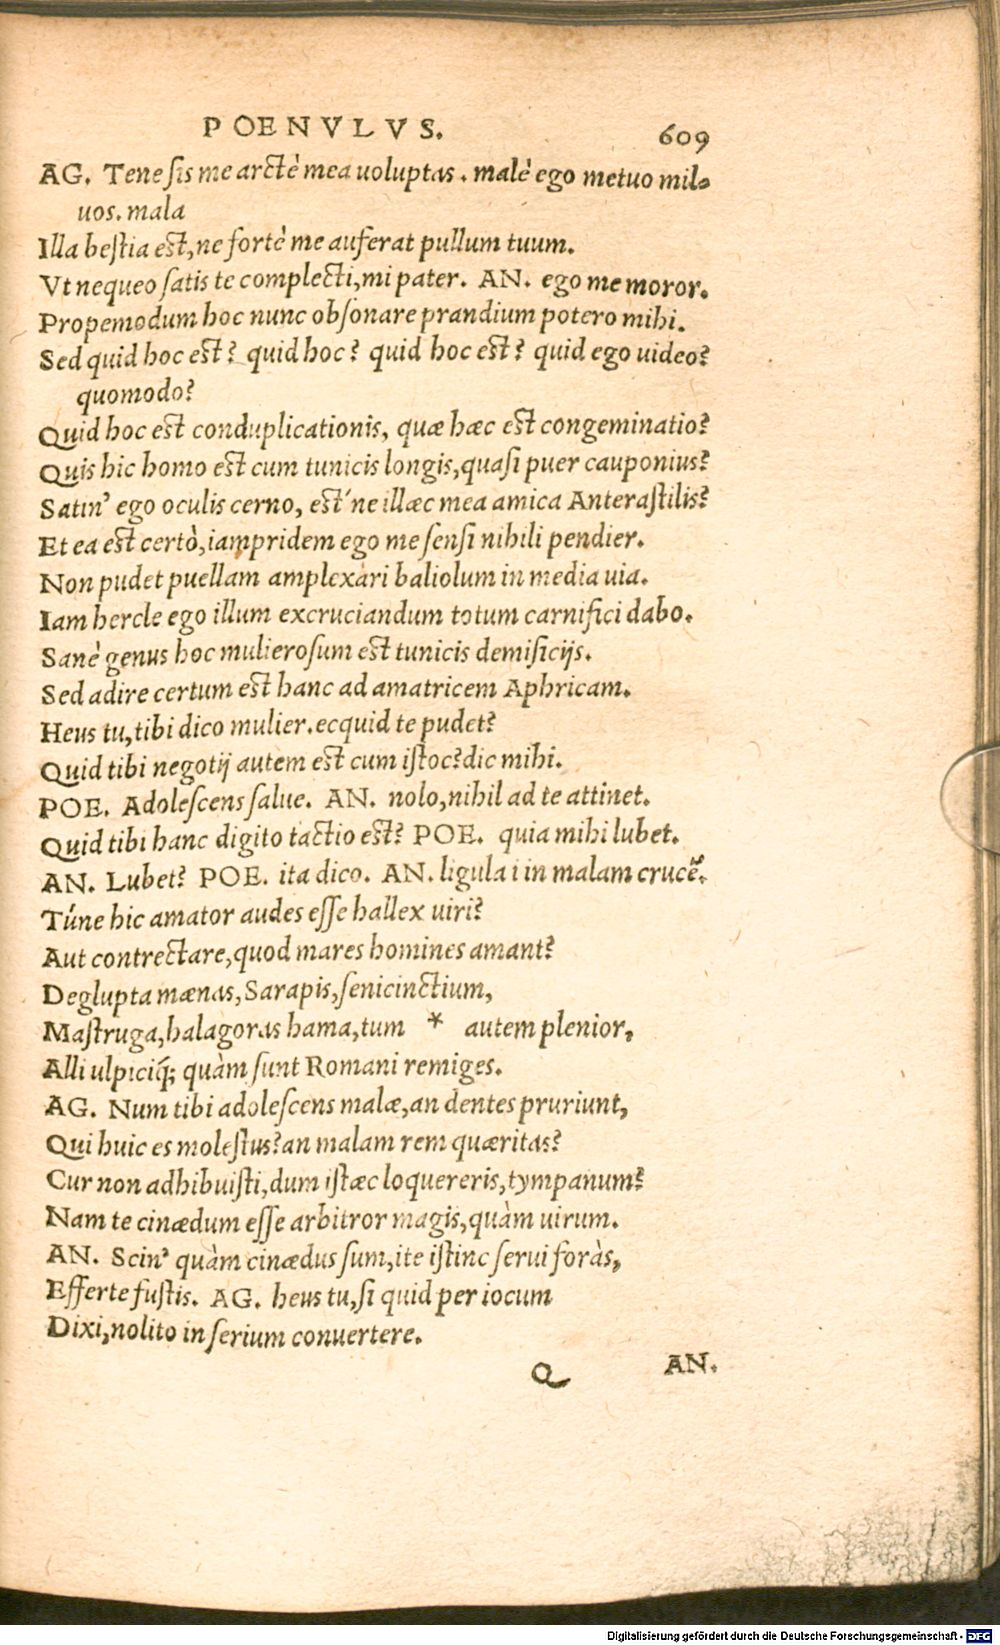 POENVLVS. 609
AG. Tene sis me arctè mea uoluptas. malè ego metuo mil-
uos. mala
Illa bestia est, ne fortè me auferat pullum tuum.
Vt nequeo satis te complecti, mi pater. AN. ego me moror.
Propemodum hoc nunc obsonare prandium potero mihi.
Sed quid hoc est? quid hoc? quid hoc est? quid ego uideo?
quomodo?
Quid hoc est conduplicationis, quæ hæc est congeminatio?
Quis hic homo est cum tunicis longis, quasi puer cauponius?
Satin’ ego oculis cerno, est´ne illæc mea amica Anterastilis?
Et ea est certò, iampridem ego me sensi nihili pendier.
Non pudet puellam amplexari baliolum in media uia.
Iam hercle ego illum excruciandum totum carnifici dabo.
Sanè genus hoc mulierosum est tunicis demisicijs.
Sed adire certum est hanc ad amatricem Aphricam.
Heus tu, tibi dico mulier. ecquid te pudet?
Quid tibi negotij autem est cum istoc? dic mihi.
POE. Adolescens salue. AN. nolo, nihil ad te attinet.
Quid tibi hanc digito tactio est? POE. quia mihi lubet.
AN. Lubet? POE. ita dico. AN. ligula i in malam crucẽ.
Túne hic amator audes esse hallex uiri?
Aut contrectare, quod mares homines amant?
Deglupta mænas, Sarapis, senicinctium,
Mastruga, halagoras hama, tum * autem plenior,
Alli ulpiciq́; quàm sunt Romani remiges.
AG. Num tibi adolescens malæ, an dentes pruriunt,
Qui huic es molestus? an malam rem quæritas?
Cur non adhibuisti, dum istæc loquereris, tympanum?
Nam te cinædum esse arbitror magis, quàm uirum.
AN. Scin’ quàm cinædus sum, ite istinc serui foràs,
Efferte fustis. AG. heus tu, si quid per iocum
Dixi, nolito in serium conuertere.
Q AN.
Digitalisierung gefördert durch die Deutsche Forschungsgemeinschaft - DFG